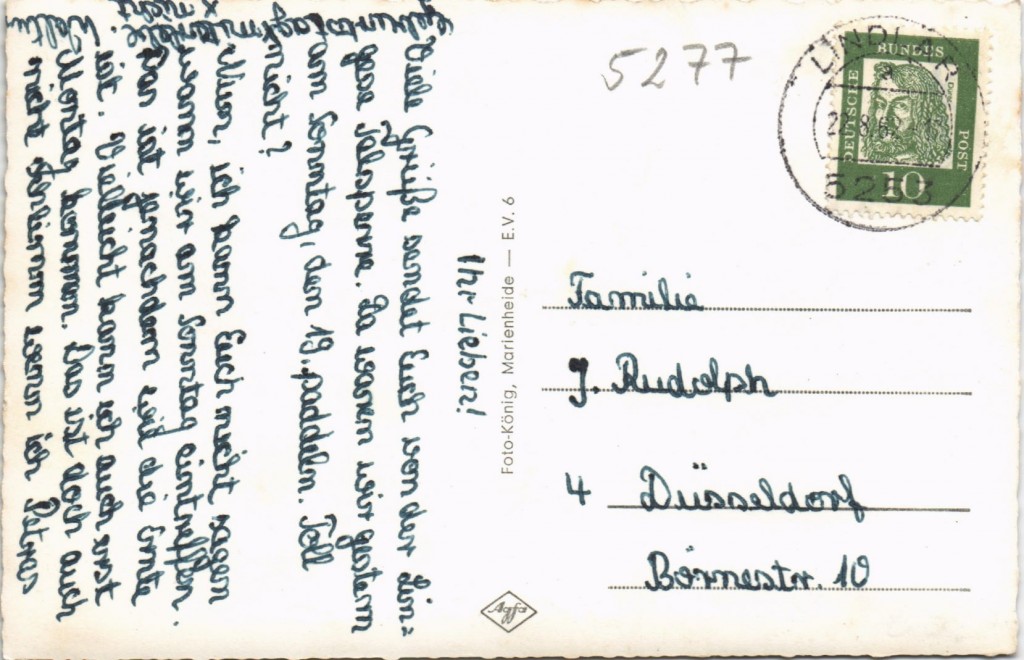 Ihr Lieben!
Viele Grüße sendet Euch von der Lin=
gese Talsperre. Da waren wir gestern
am Sonntag, den 19. paddeln. Toll
nicht?
Nun, ich kann Euch nicht sagen
wann wir am Sonntag eintreffen.
Das ist jenachdem wie die Ernte
ist. Vielleicht kann ich auch erst
Montag kommen. Das ist doch auch
nicht schlimm wenn ich Petras
Geburtstag x miterlebe.
x nicht
Foto-König, Marienheide — E.V. 6
Agfa
5277
LINDLAR
5253
DEUTSCHE BUNDES POST
10
Familie
J. Rudolph
4 Düsseldorf
Börnestr. 10